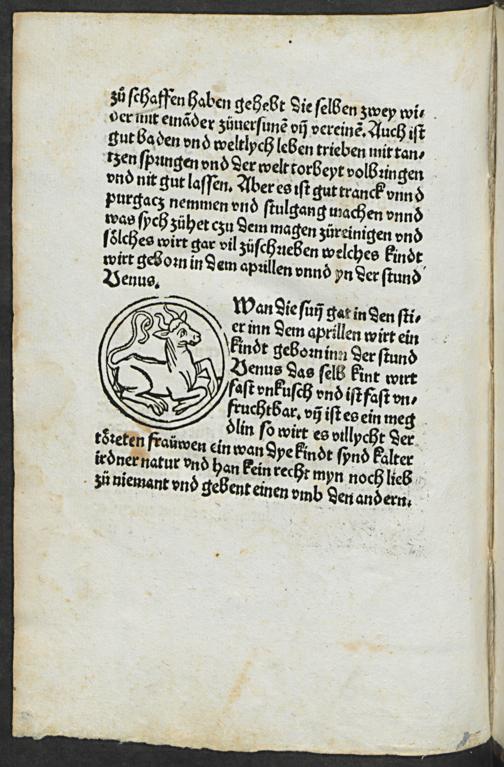 zů schaffen haben gehebt die selben zwey wi⸗
der mit eināder zůuersunē vñ vereinē. Auch ist
gut baden vnd weltlych leben trieben mit tan⸗
tzen springen vnd der welt torheyt volbringen
vnd nit gut lassen. Aber es ist gut tranck vnnd
purgacz nemmen vnd stulgang machen vnnd
was sych zühet czu dem magen zůreinigen vnd
sölches wirt gar vil zůschrieben welches kindt
wirt geborn in dem aprillen vnnd yn der stund
Venus.
Wan die suñ gat in den sti⸗
er inn dem aprillen wirt ein
kindt geborn inn der stund
Venus das selb kint wirt
fast vnkusch vnd ist fast vn⸗
fruchtbar. vñ ist es ein meg
dlin so wirt es villycht der
töreten fraüwen ein wan dye kindt synd kalter
irdner natur vnd han kein recht myn noch lieb
zů niemant vnd gebent einen vmb den andern.